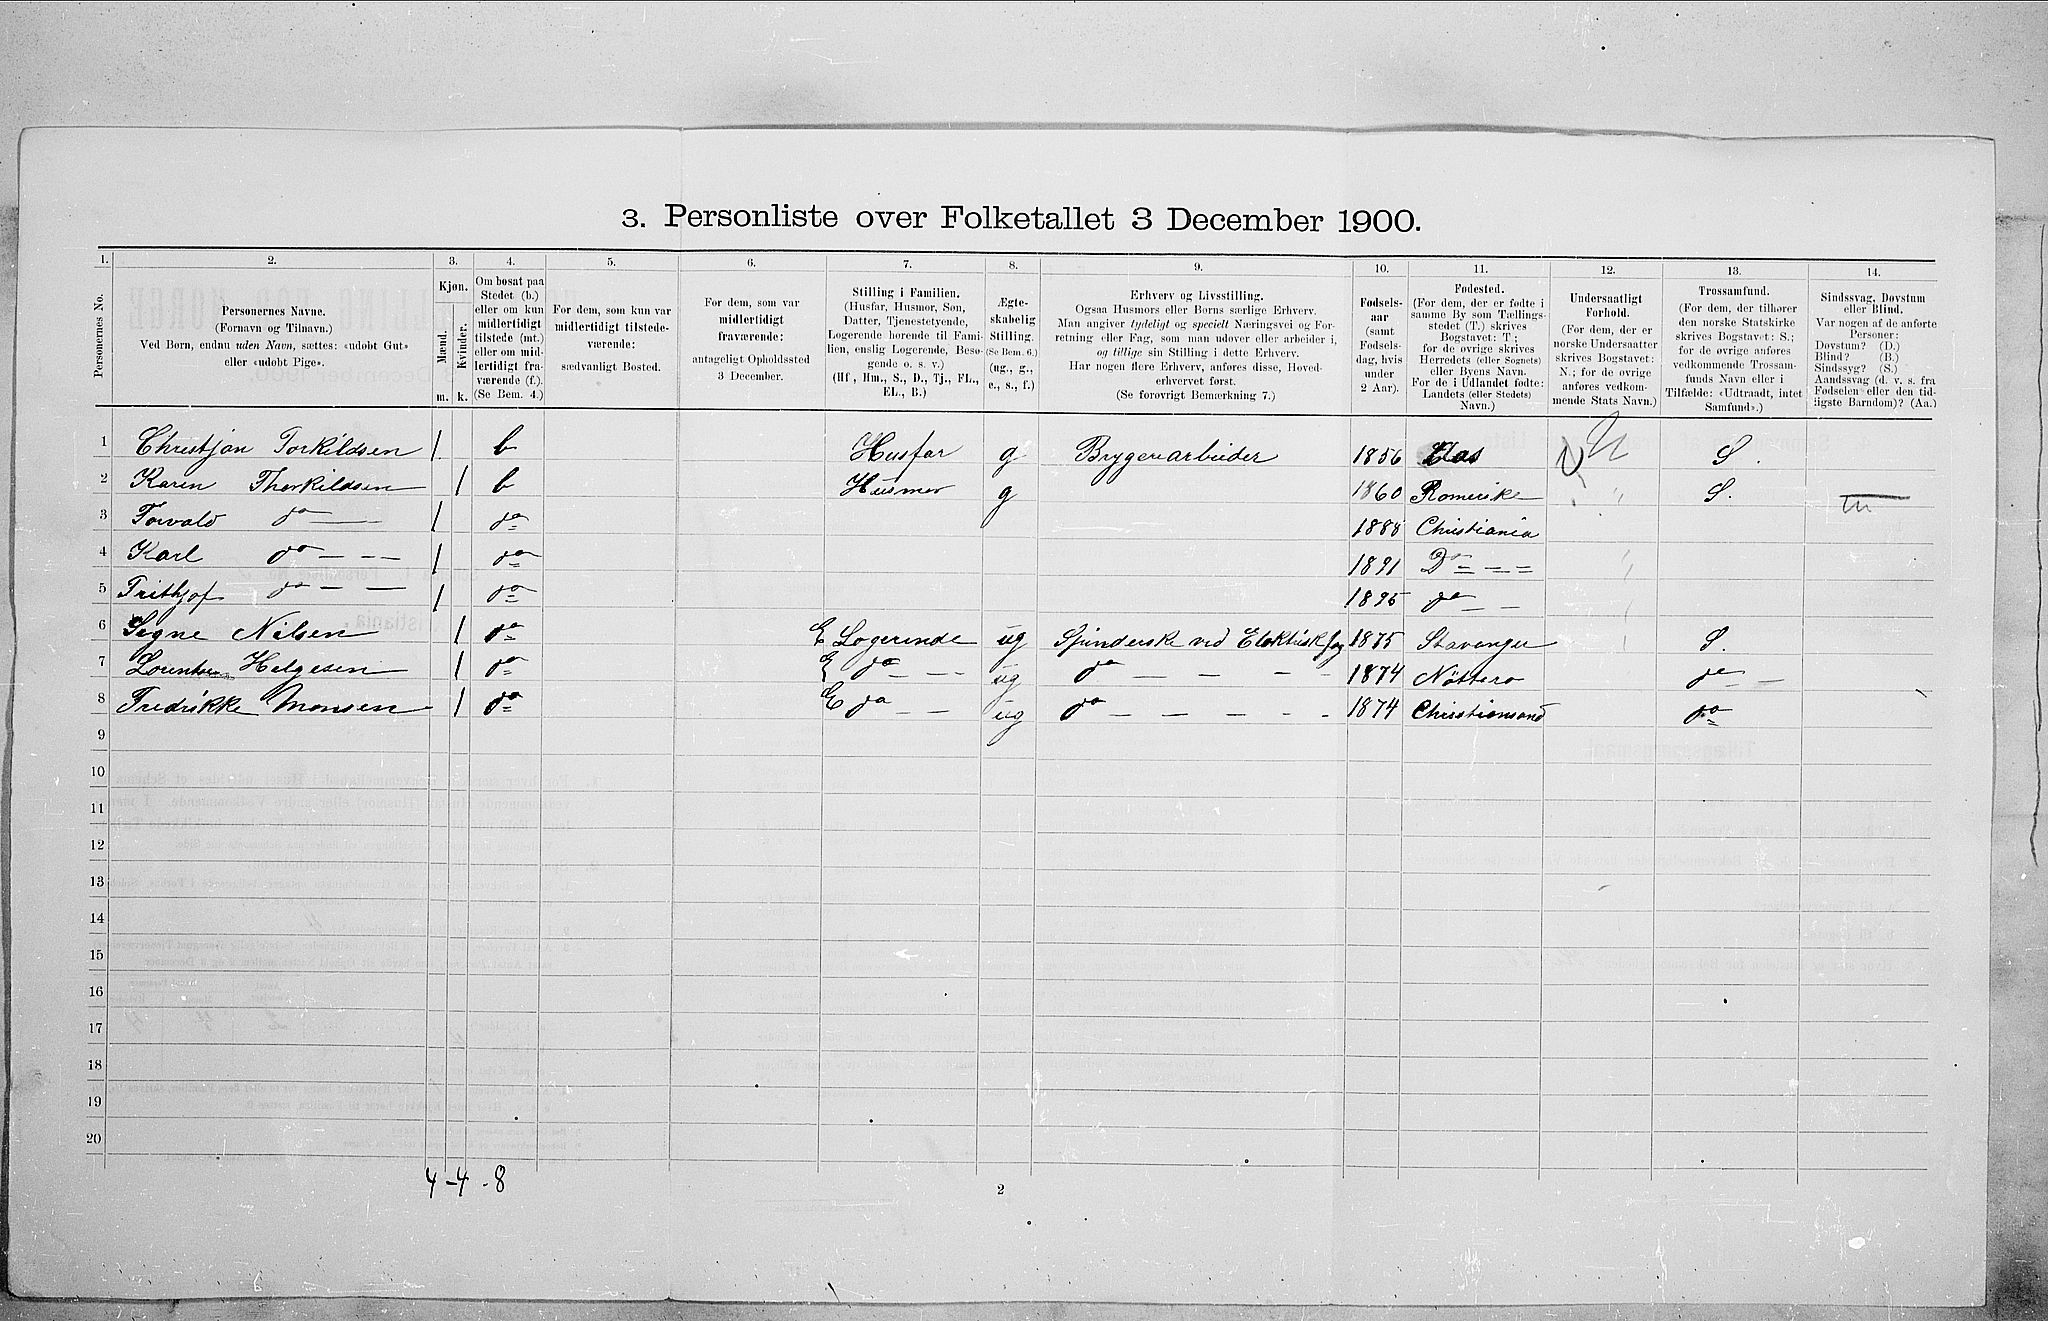 3. Personliste over Folketallet 3 December 1900.
1. 2. 3. 4. 5. 6. 7. 8. 9. 10. 11. 12. 13. 14.
Personernes No.
Personernes Navne.
(Fornavn og Tilnavn.)
Ved Børn, endnu uden Navn, sættes: «udøbt Gut»
eller «udøbt Pige».
Kjøn.
Mænd.
Kvinder.
m. k.
Om bosat paa
Stedet (b.)
eller om kun
midlertidigt
tilstede (mt.)
eller om mid-
lertidigt fra-
værende (f.).
(Se Bem. 4.)
For dem, som kun var
midlertidigt tilstede-
værende:
sædvanligt Bosted.
For dem, som var
midlertidigt
fraværende:
antageligt Opholdssted
3 December.
Stilling i Familien.
(Husfar, Husmor, Søn,
Datter, Tjenestetyende,
Logerende hørende til Fami-
lien, enslig Logerende, Besø-
gende o. s. v.)
(Hf., Hm., S., D., Tj., FL.,
EL., B.)
Ægte-
skabelig
Stilling.
(Se Bem. 6.)
(ug., g.,
e., s., f.)
Erhverv og Livsstilling.
Ogsaa Husmors eller Børns særlige Erhverv.
Man angiver tydeligt og specielt Næringsvei og For-
retning eller Fag, som man udøver eller arbeider i,
og tillige sin Stilling i dette Erhverv.
Har nogen flere Erhverv, anføres disse, Hoved-
erhvervet først.
(Se forøvrigt Bemærkning 7.)
Fødsels-
aar
(samt
Fødsels-
dag, hvis
under
2 Aar).
Fødested.
(For dem, der er fødte i
samme By som Tællings-
stedet (T.) skrives
Bogstavet: T;
for de øvrige skrives
Herredets (eller Sognets)
eller Byens Navn.
For de i Udlandet fødte:
Landets (eller Stedets)
Navn.)
Undersaatligt
Forhold.
(For dem, der er
norske Undersaatter
skrives Bogstavet:
N.; for de øvrige
anføres vedkom-
mende Stats Navn.)
Trossamfund.
(For dem, der tilhører
den norske Statskirke
skrives Bogstavet: S.;
for de øvrige anføres
vedkommende Trossam-
funds Navn eller i
Tilfælde: «Udtraadt, intet
Samfund».)
Sindssvag, Døvstum
eller Blind.
Var nogen af de anførte
Personer:
Døvstum? (D.)
Blind? (B.)
Sindssyg? (S.)
Aandssvag (d. v. s. fra
Fødselen eller den tid-
ligste Barndom)? (Aa.)
1 Christjan Torkildsen 1 b Husfar g Bryggeriarbeider 1856 S.
2 Karen Thorkildsen 1 b Husmor g 1860 Romerike " S.
3 Torvald do 1 do 1888 Christiania
4 Karl do 1 do 1891 Do "
5 Trithjof do 1 do 1895 do
6 Signe Nilsen 1 do E Logerende ug Spinderske ved 1875 Stavanger S.
7 Helgesen 1 do E do ug do 1874 Nøttero do
8 Fredrikke Monsen 1 do E do ug do 1874 Christiansand do
9
10
11
12
13
14
15
16
17
18
19
20
4-4-8
2